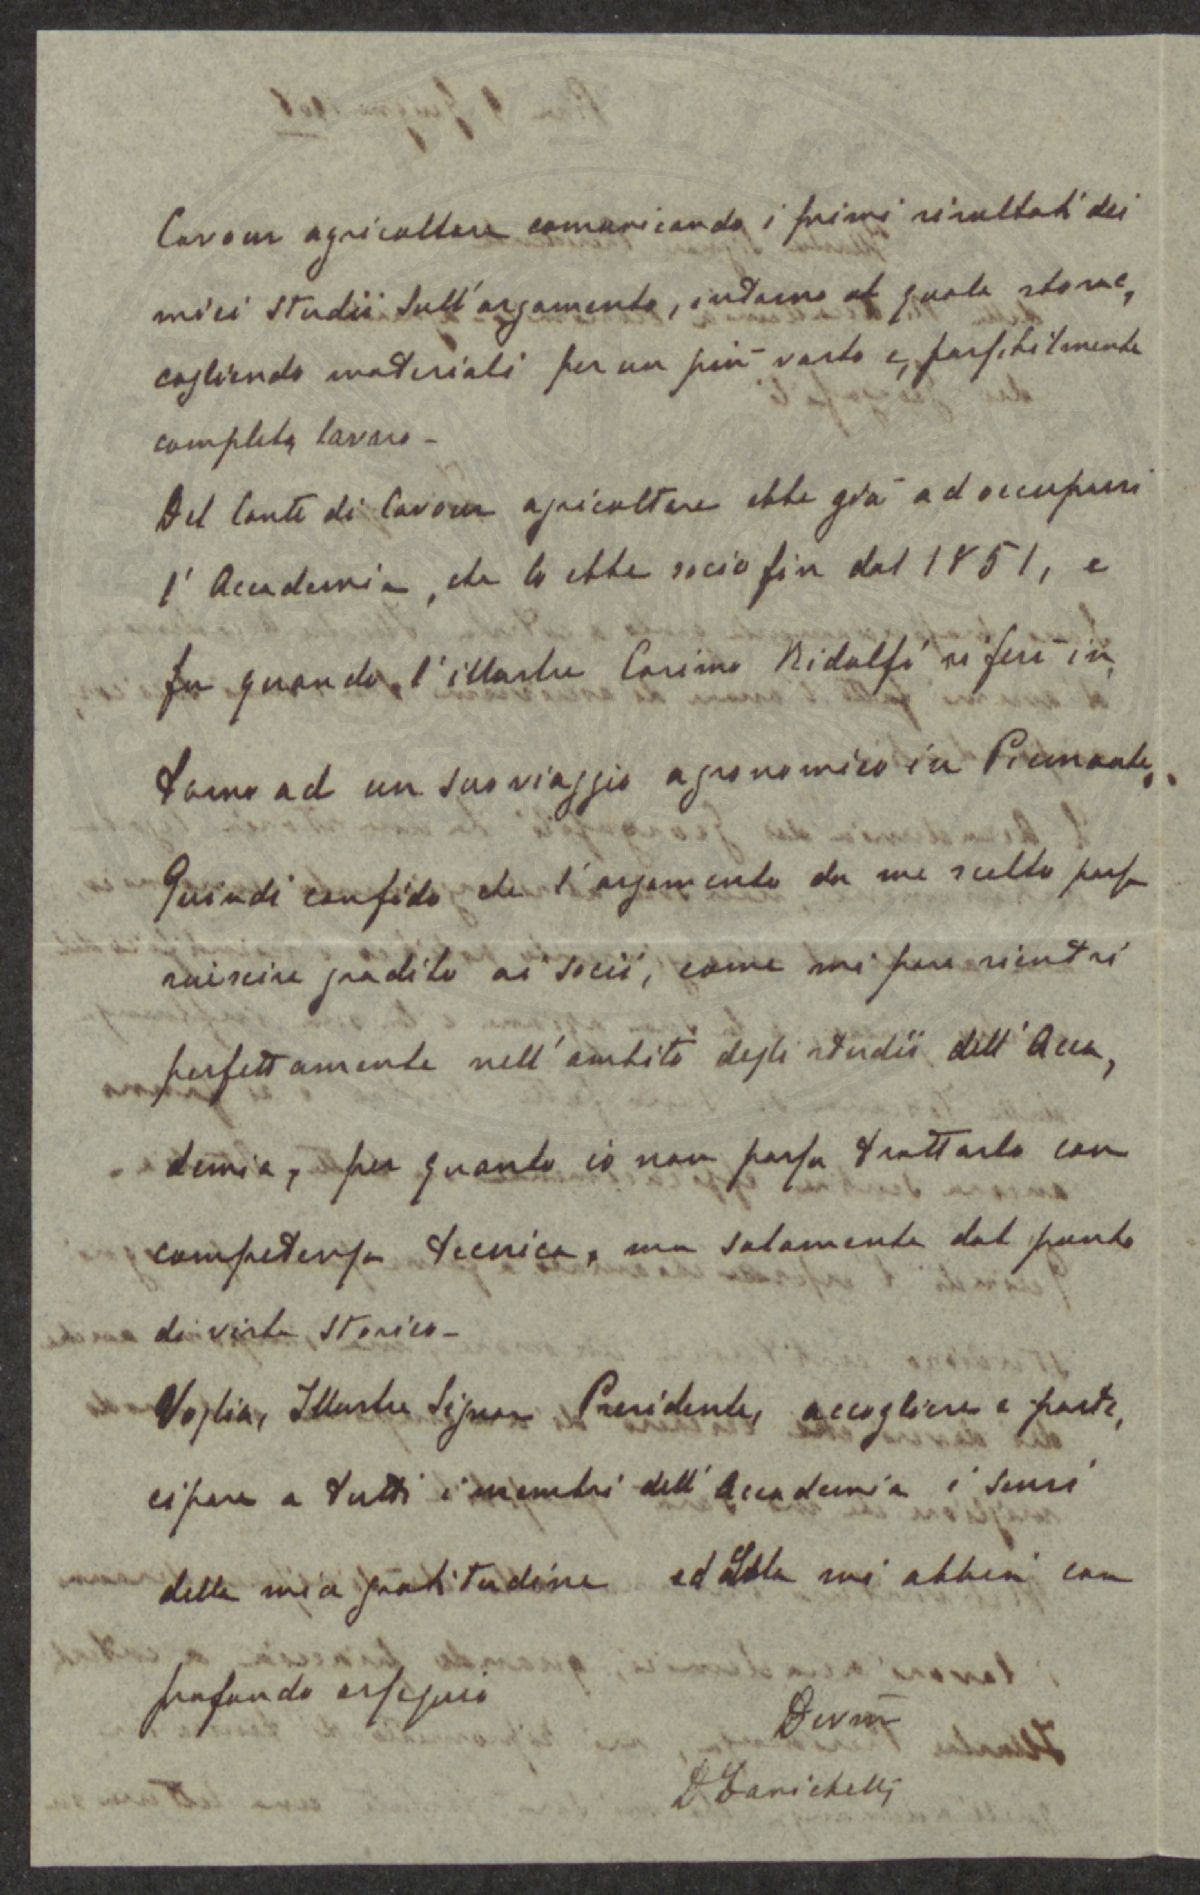 Cavour agricoltore comunicando i primi risultati dei
miei studii sull'argomento, intorno al quale sto rac,
cogliendo materiali per un più vasto e, possibilmente
completo lavoro -
Del Conte di Cavour agricoltore ebbe già ad occuparsi
l'Accademia, che lo ebbe socio fin dal 1851, e
fu quando l'illustre Cosimo Ridolfi riferì in,
torno ad un suo viaggio agronomico in Piemonte.
Quindi confido che l'argomento da me scelto possa
riuscire gradito ai socii, come mi pare rientri
perfettamente nell'ambito degli studii dell'Acca,
demia, per quanto io non possa trattarlo con
competenza tecnica, ma solamente dal punto
di vista storico -
Voglia, Illustre Signor Presidente, accogliere e parte,
cipare a tutti i membri dell'Accademia i sensi
della mia gratitudine ed Ella mi abbia con
profondo ossequio
Devmo
D Zanichelli